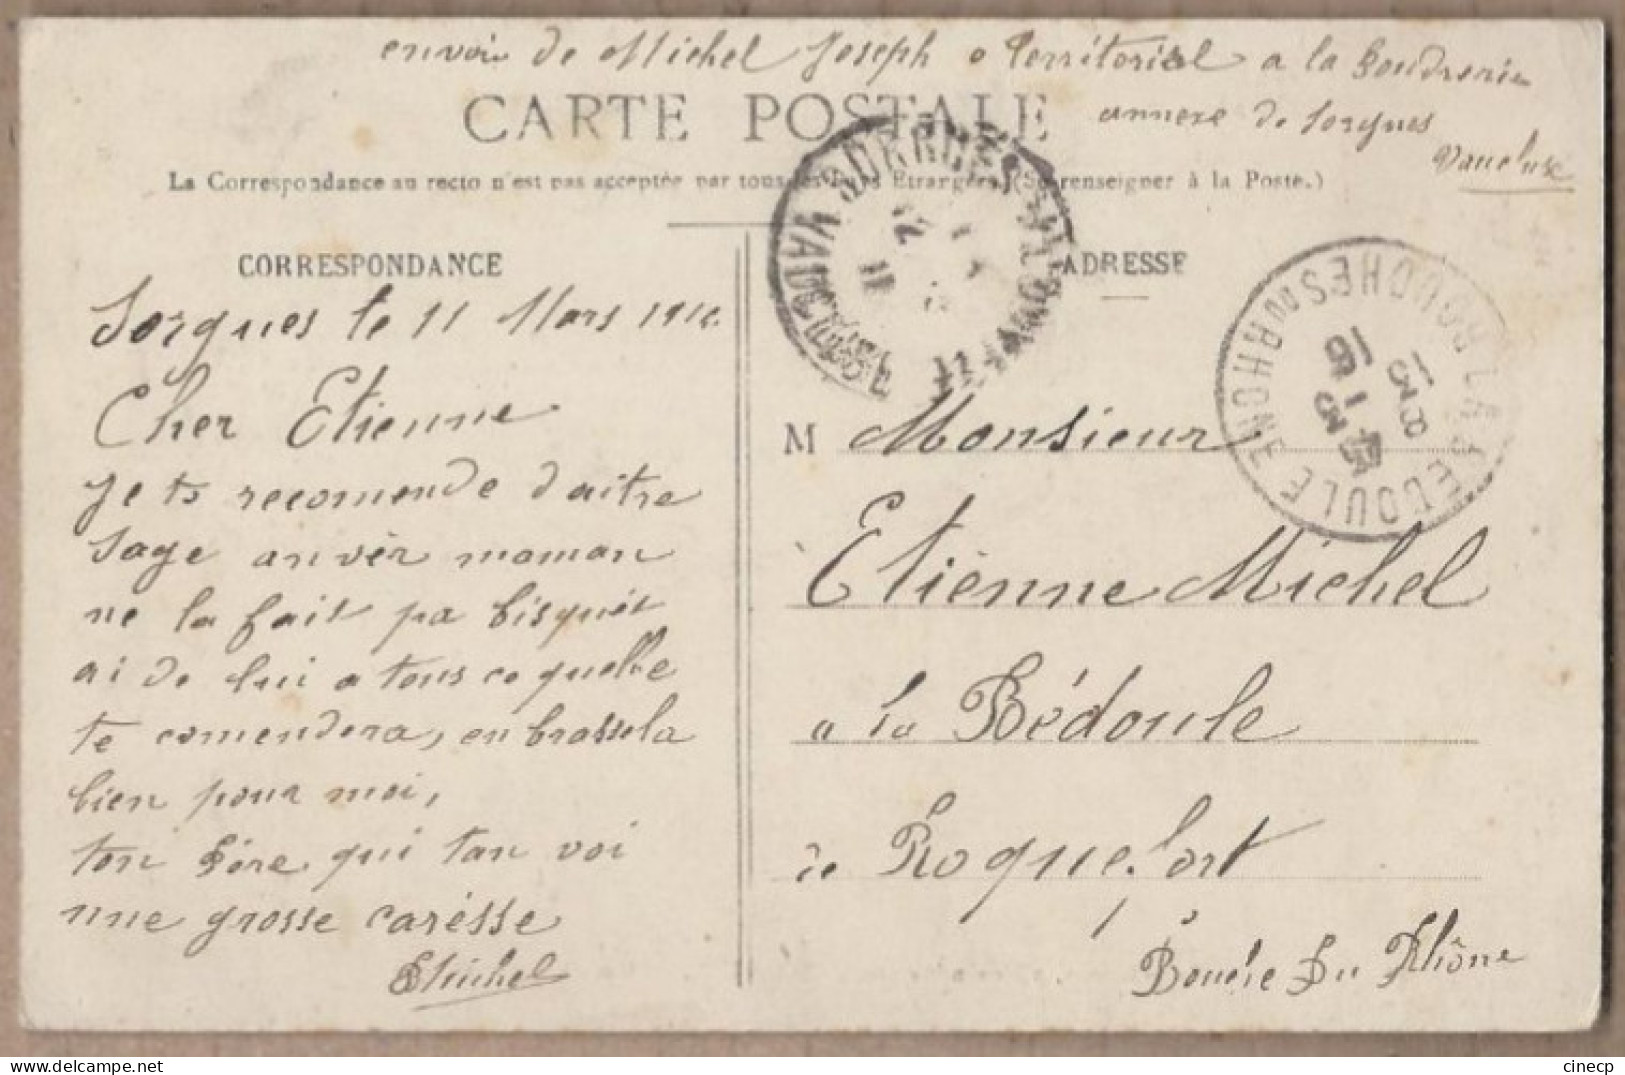 envoi de Michel Joseph Territorial a la Poudrerie
CARTE POSTALE
annexe de Sorgues
Vaucluse
La Correspondance au recto n'est pas acceptée par tous les Pays Etrangers (Se renseigner à la Poste.)
CORRESPONDANCE
Sorgues le 11 Mars 191
Cher Etienne
Je te recomende d'aitre
sage anvèr moman
ne la fait pa bisquér
ai de lui a tous ce quelle
te comendera, enbrassela
bien pour moi,
ton Pére qui tan voi
une grosse carésse
Michel
ADRESSE
M Monsieur
Etiènne Michel
a la Bédoule
de Roquefort
Bouche Du Rhône
SORGUES
VAUCLUSE
LA BEDOULE
BOUCHES DU RHONE
cinecp